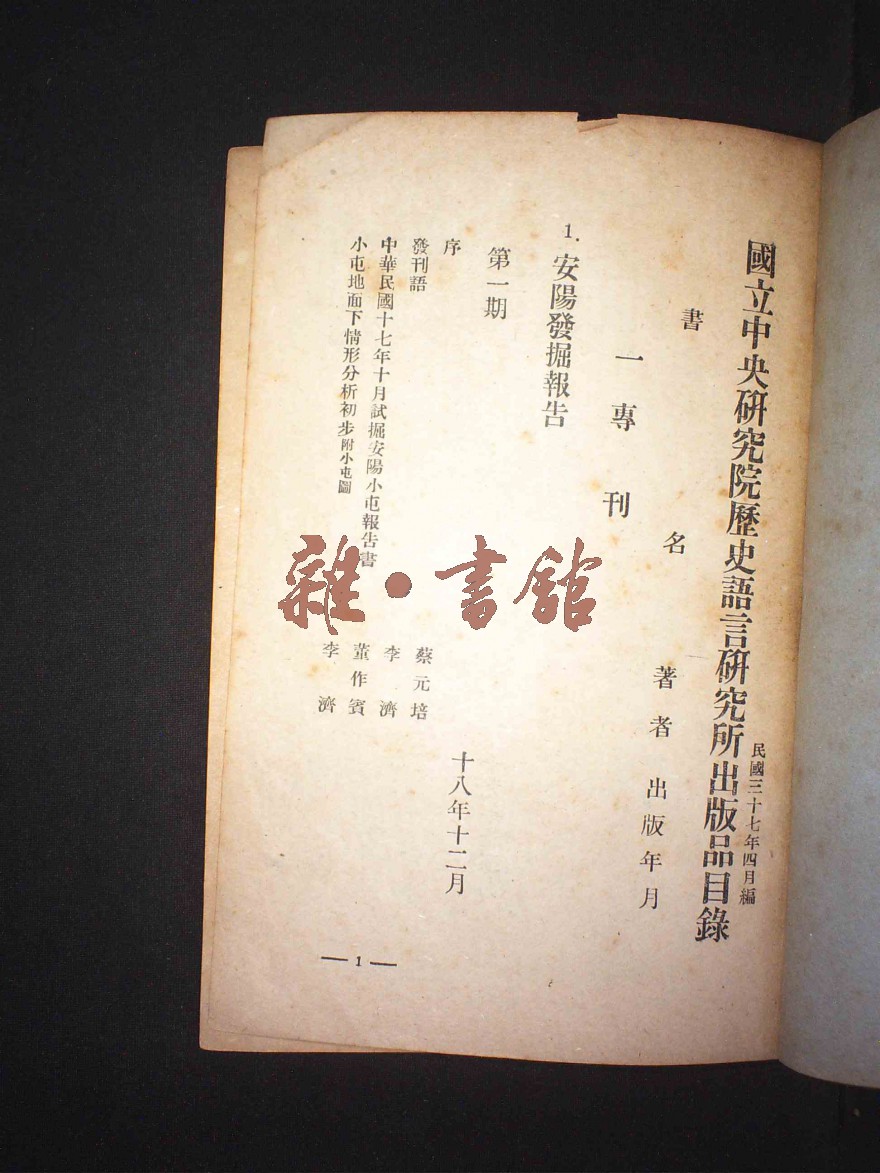 國立中央硏究院歷史語言硏究所出版品目錄
民國三十七年四月編
書名 著者 出版年月
一專刊
1. 安陽發掘報告
第一期 十八年十二月
序 蔡元培
發刊語 李濟
中華民國十七年十月試掘安陽小屯報告書 董作賓
小屯地面下情形分析初步附小屯圖 李濟
— 1 —
雜·書館